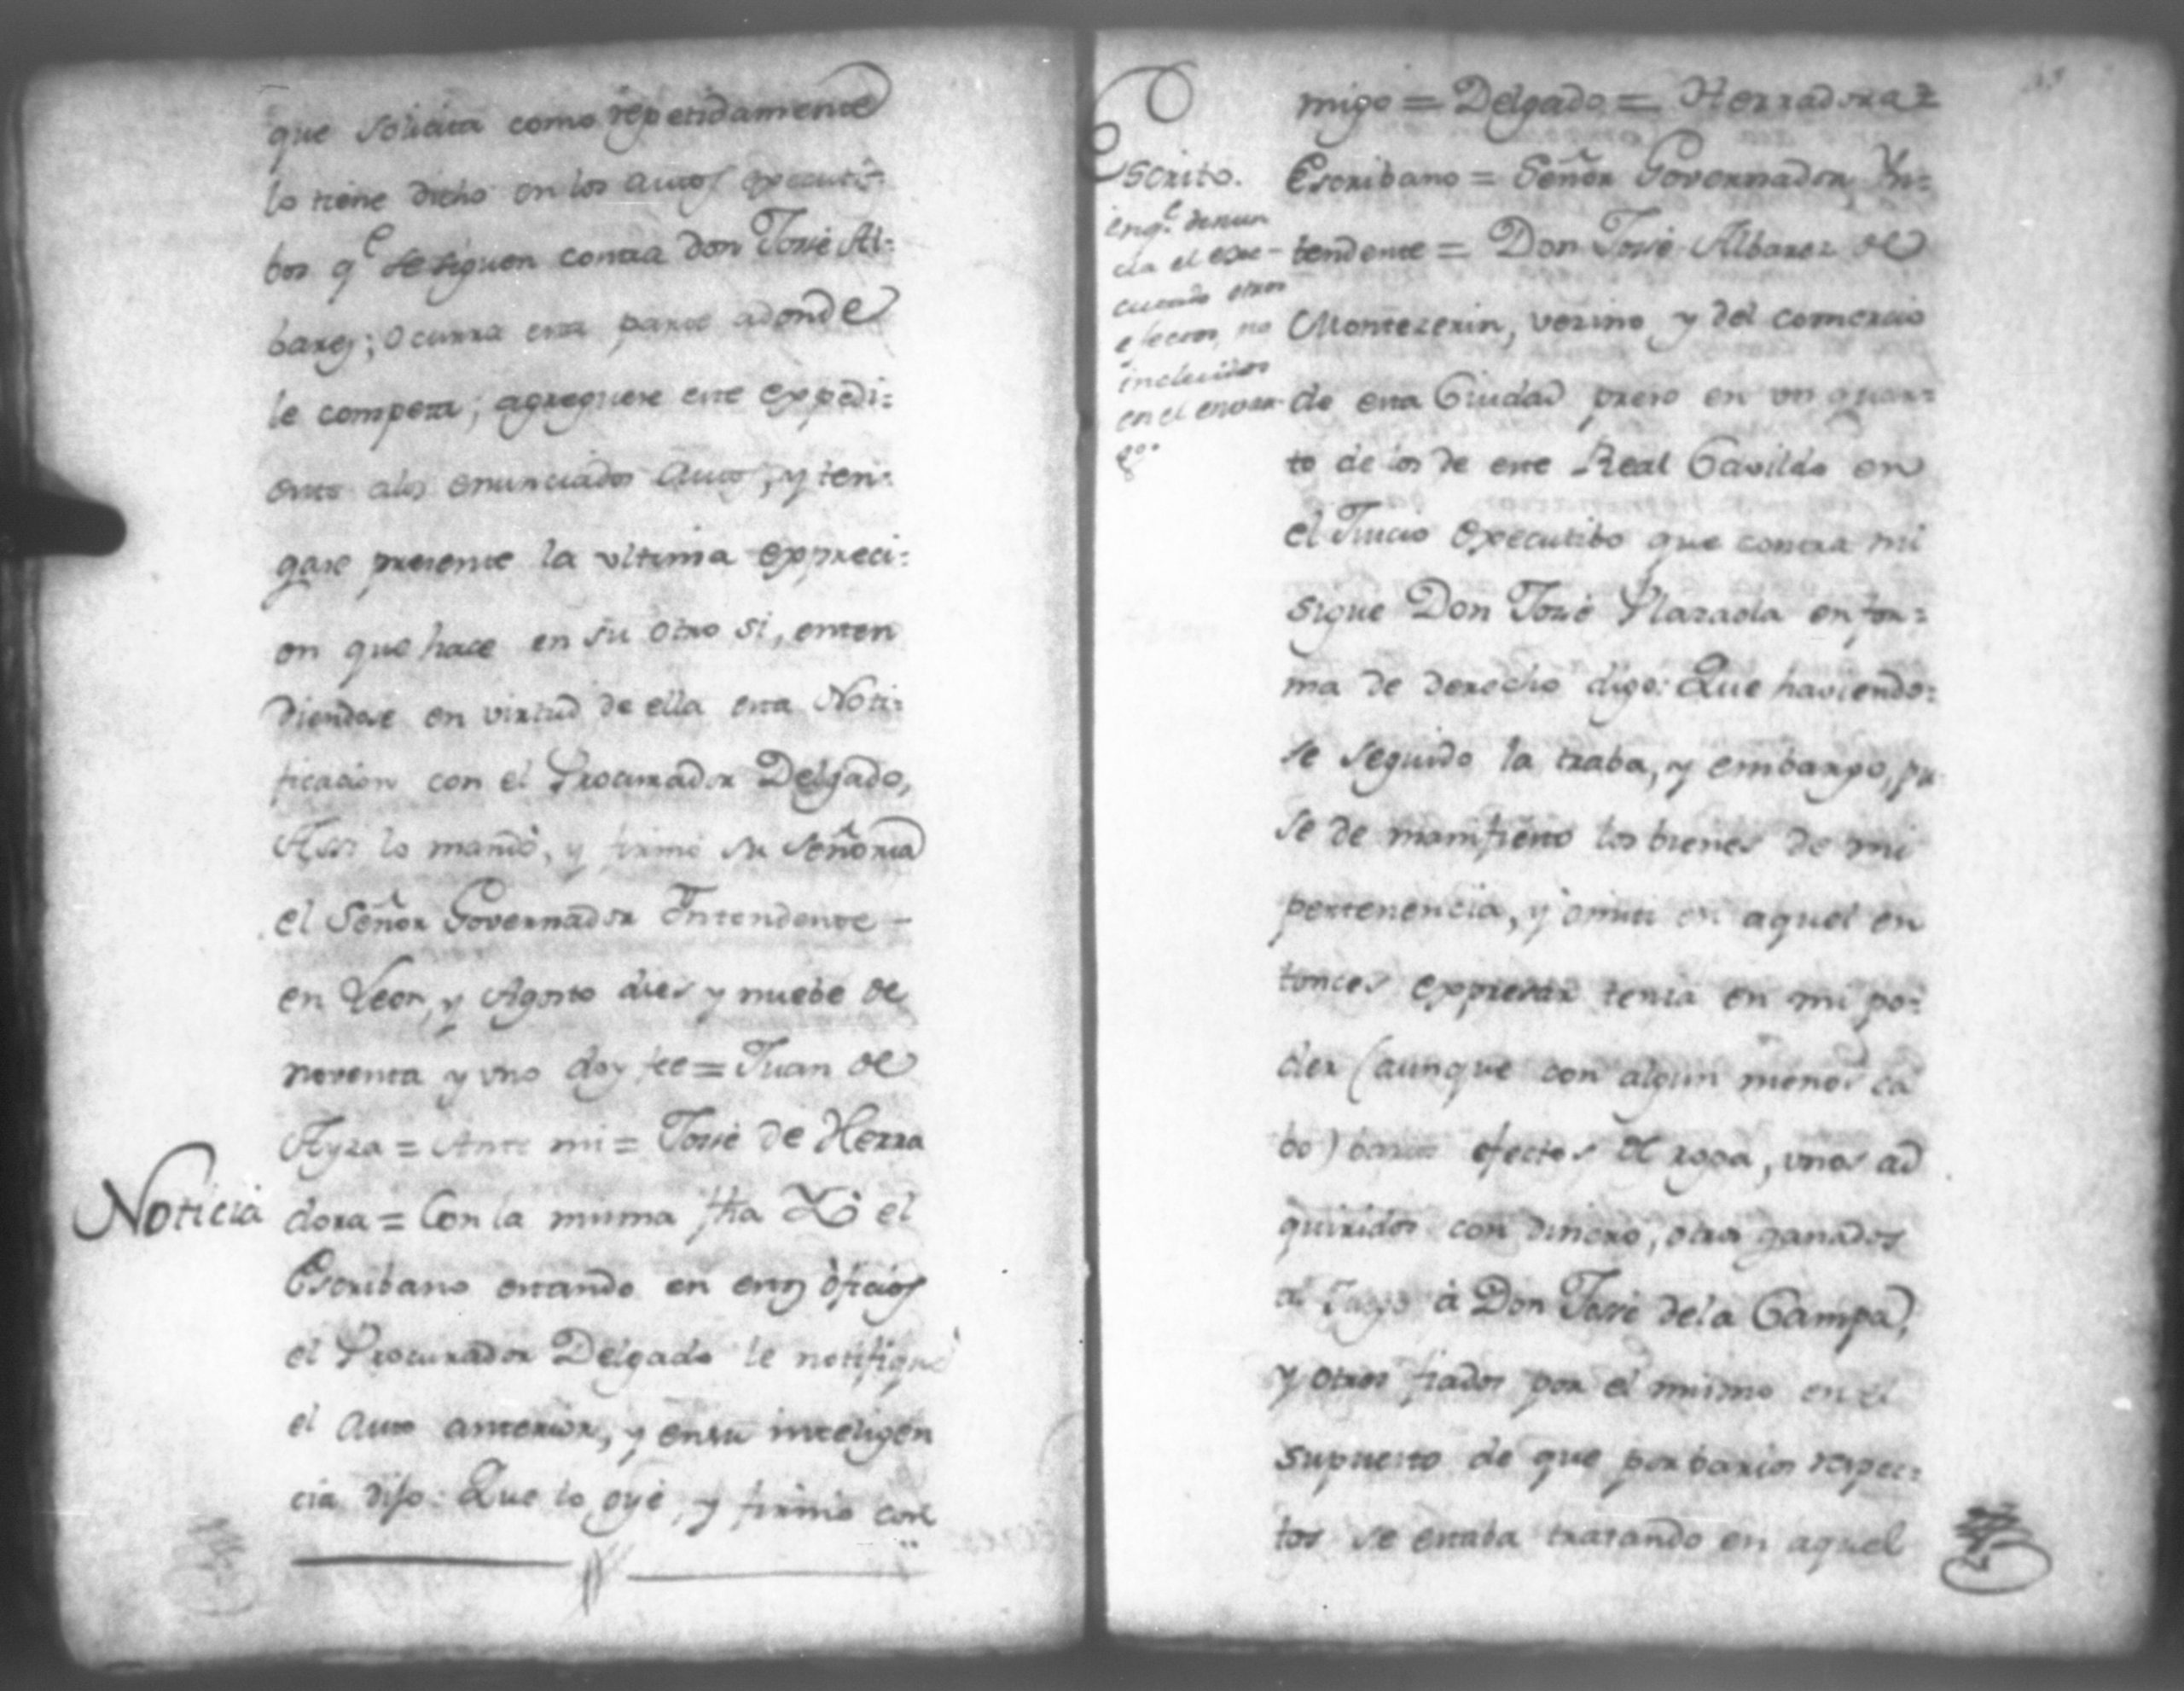 que solicita como repetidamente
lo tiene dicho en los autos executi=
bos q.e se siguen contra don Josè Al=
barez; ocurra esta parte adonde
le competa; agreguese este expedi=
ente alos enunciados autos, y ten=
gase presente la ultima expreci=
on que hace en su otro si, enten
diendose en virtud de ella esta Noti=
ficacion con el Procurador Delgado,
Assi lo mandò, y firmò su Señoria
el Señor Governador Intendente -
en Leon, y Agosto dies y nuebe de
noventa y uno doy fee = Juan de
Ayza = Ante mi = Josè de Herra
Noticia
dora = Con la misma fha Yo el
Escribano estando en estos oficios
el Procurador Delgado le notifiquè
el auto anterior, y en su inteligen
cia dijo: Que lo oyè, y firmò con
migo = Delgado = Herradora =
Escrito.
en q.e denun
cia el exe-
cutado otros
efectos no
incluidos
en el embar
go.
Escribano = Señor Governador Yn=
tendente = Don Josè Albarez de
Montezerin, vezino y del comercio
de esta Ciudad preso en un quar=
to de los de este Real Cavildo en
el Juicio executibo que contra mi
sigue Don Josè Plazaola en for=
ma de derecho digo: Que haviendo=
se seguido la traba, y embargo, pu
se de manifiesto los bienes de mi
pertenencia, y omiti en aquel en
tonces expresar tenia en mi po=
der (aunque con algun menos ca
bo) barios efectos de ropa, unos ad
quiridos con dinero, otros ganados
al Juego à Don Josè dela Campa,
y otros fiados por el mismo en el
supuesto de que por barios respec=
tos se estaba tratando en aquel